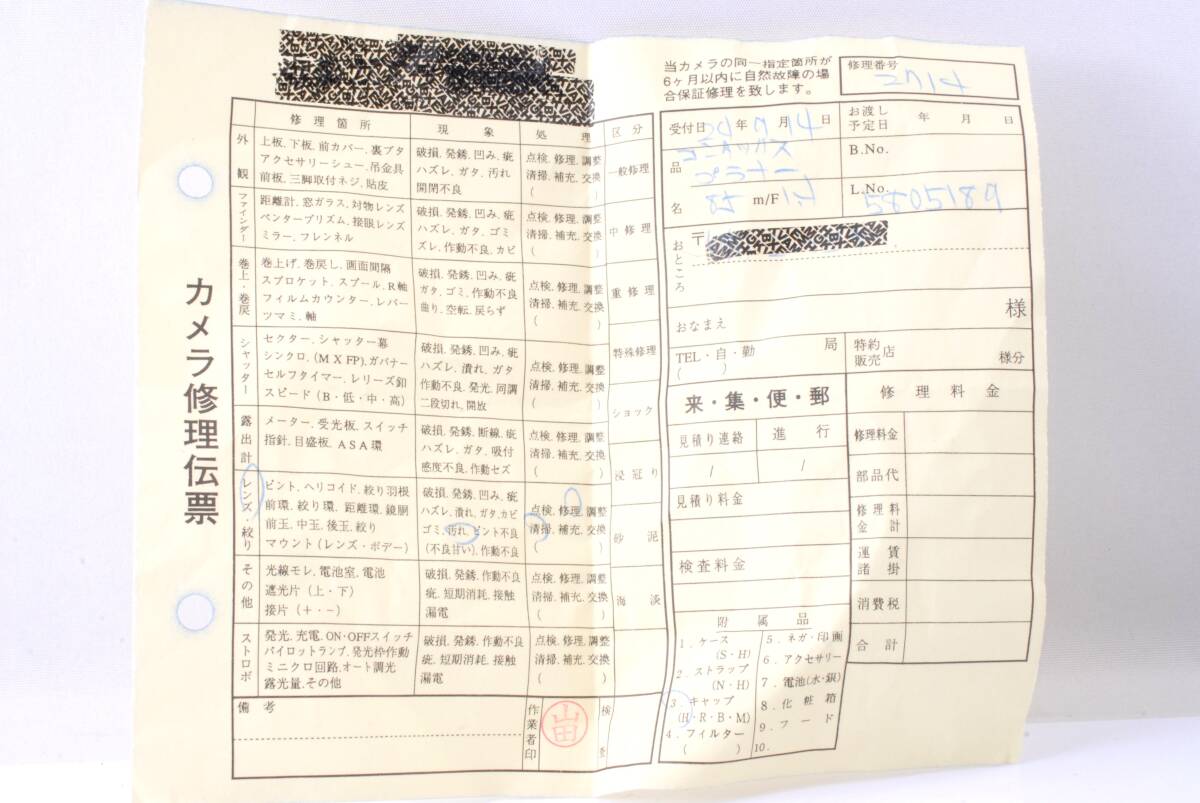 カメラ修理伝票
当カメラの同一指定箇所が
6ヶ月以内に自然故障の場
合保証修理を致します。
修理番号
2714
修理箇所 現象 処理 区分
外観
上板、下板、前カバー、裏ブタ
アクセサリーシュー、吊金具
前板、三脚取付ネジ、貼皮
破損、発銹、凹み、疵
ハズレ、ガタ、汚れ
開閉不良
点検、修理、調整
清掃、補充、交換
( )
一般修理
ファインダー
距離計、窓ガラス、対物レンズ
ペンタープリズム、接眼レンズ
ミラー、フレンネル
破損、発銹、凹み、疵
ハズレ、ガタ、ゴミ
ズレ、作動不良、カビ
点検、修理、調整
清掃、補充、交換
( )
中修理
巻上・巻戻
巻上げ、巻戻し、画面間隔
スプロケット、スプール、R軸
フィルムカウンター、レバー
ツマミ、軸
破損、発銹、凹み、疵
ガタ、ゴミ、作動不良
曲り、空転、戻らず
点検、修理、調整
清掃、補充、交換
( )
重修理
シャッター
セクター、シャッター幕
シンクロ、(MXFP)、ガバナー
セルフタイマー、レリーズ釦
スピード(B・低・中・高)
破損、発銹、凹み、疵
ハズレ、潰れ、ガタ
作動不良、発光、同調
二段切れ、開放
点検、修理、調整
清掃、補充、交換
( )
特殊修理
ショック
露出計
メーター、受光板、スイッチ
指針、目盛板、ASA環
破損、発銹、断線、疵
ハズレ、ガタ、吸付
感度不良、作動セズ
点検、修理、調整
清掃、補充、交換
( )
浸冠り
レンズ・絞り
ピント、ヘリコイド、絞り羽根
前環、絞り環、距離環、鏡胴
前玉、中玉、後玉、絞り
マウント(レンズ・ボデー)
破損、発銹、凹み、疵
ハズレ、潰れ、ガタ、カビ
ゴミ、汚れ、ピント不良
(不良甘い)、作動不良
点検、修理、調整
清掃、補充、交換
( )
砂泥
その他
光線モレ、電池室、電池
遮光片(上・下)
接片(+・−)
破損、発銹、作動不良
疵、短期消耗、接触
漏電
点検、修理、調整
清掃、補充、交換
( )
海淡
ストロボ
発光、充電、ON・OFFスイッチ
パイロットランプ、発光枠作動
ミニクロ回路、オート調光
露光量、その他
破損、発銹、作動不良
疵、短期消耗、接触
漏電
点検、修理、調整
清掃、補充、交換
( )
備考
作業者印
山田
検査
受付日 年 7月 14日
お渡し予定日 年 月 日
品名
コンタックス
プラナー
85 m/F 1.
B.No.
L.No.
5805189
おところ
〒
おなまえ
様
TEL・自・勤 局
( )
特約販売店
様分
来・集・便・郵
見積り連絡 進行
/ /
見積り料金
検査料金
修理料金
修理料金
部品代
修理料金計
運賃諸掛
消費税
合計
附属品
1.ケース
(S・H)
2.ストラップ
(N・H)
3.キャップ
(H・R・B・M)
4.フィルター
( )
5.ネガ・印画
6.アクセサリー
7.電池(水・銀)
8.化粧箱
9.フード
10.